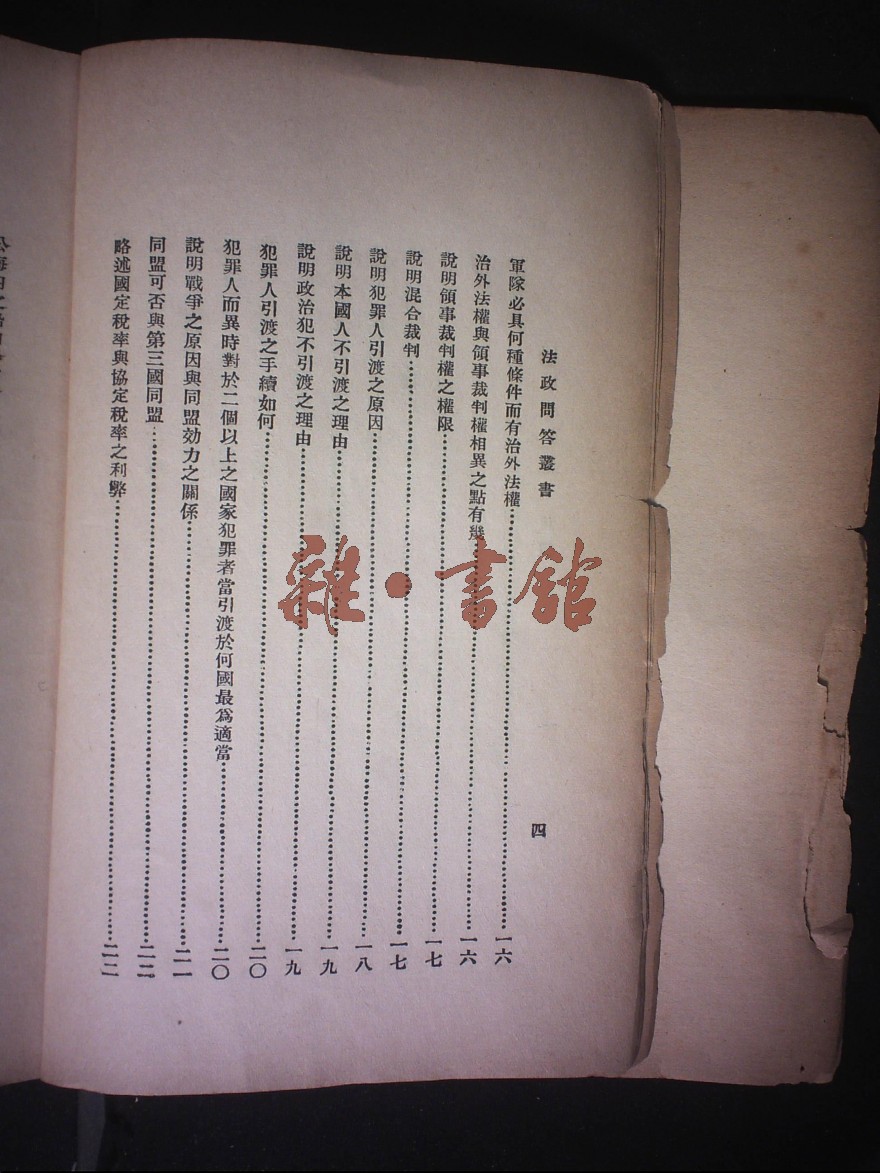 法政問答叢書
四
軍隊必具何種條件而有治外法權……一六
治外法權與領事裁判權相異之點有幾……一六
說明領事裁判權之權限……一七
說明混合裁判……一七
說明犯罪人引渡之原因……一八
說明本國人不引渡之理由……一九
說明政治犯不引渡之理由……一九
犯罪人引渡之手續如何……二〇
犯罪人而異時對於二個以上之國家犯罪者當引渡於何國最爲適當……二〇
說明戰爭之原因與同盟効力之關係……二一
同盟可否與第三國同盟……二二
略述國定稅率與協定稅率之利弊……二二
雜·書館